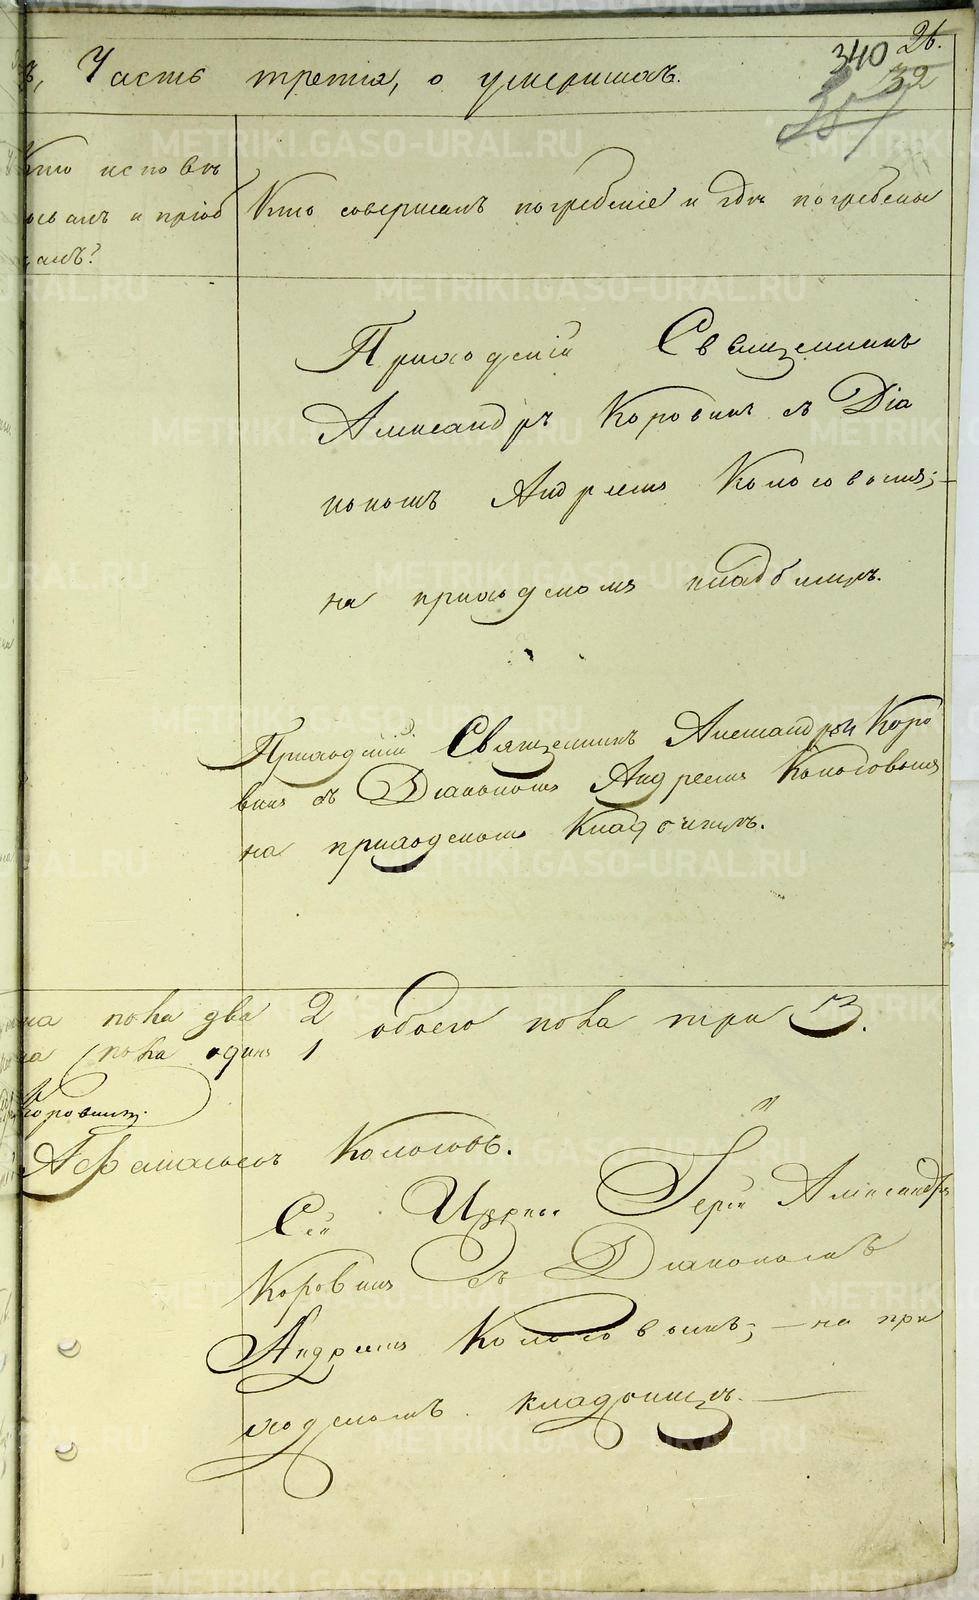 26.
340
32
ъ, Часть третiя, о умершихъ.
Кто исповѣ
овалъ и прiоб
щалъ?
Кто совершалъ погребенiе и гдѣ погребены
Приходскiй Священникъ
Александръ Коровинъ съ Дiа
кономъ Андреемъ Колосовымъ;—
на приходскомъ кладбищѣ.
Приходскiй Священникъ Александръ Коро
винъ съ Дiакономъ Андреемъ Колосовымъ
на приходскомъ Кладбищѣ.
пола два 2 обоего пола три 3.
пола одинъ 1
Коровинъ.
Афанасьевъ Колосовъ.
Сей Церкви Iерей Александръ
Коровинъ съ Дiакономъ
Андреемъ Колосовымъ; — на при
ходскомъ кладбищѣ. —